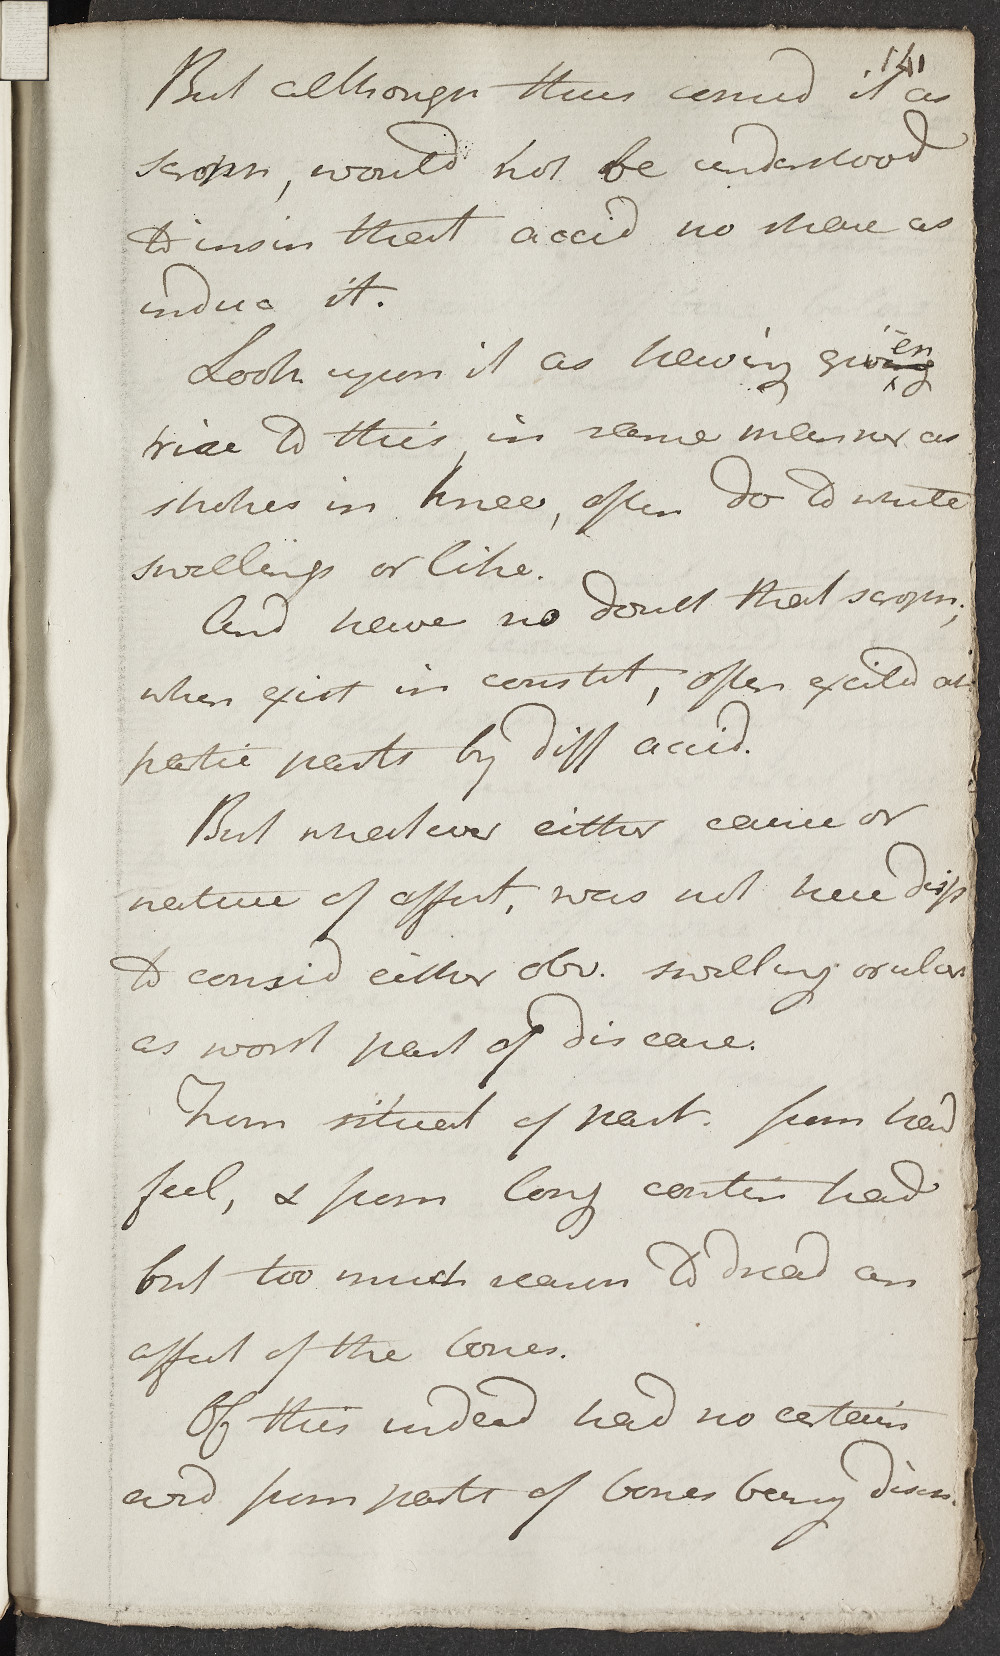 141
But although thus consid it as
scroph, would not be understood
to insin that accid no share as
induc it.
Look upon it as having given
rise to this, in same manner as
strokes in knee, often do to white
swellings or like.
And have no doubt that scroph,
when exist in constit, often excited in
partic parts by diff accid.
But whatever either cause or
nature of affect, was not here disp
to consid either obv. swelling or ulcer
as worst part of disease.
From situat of part. from had
feel, & from long contin had
but too much reason to dread an
affect of the bones.
Of this indeed had no certain
evid from parts of bones being disch.